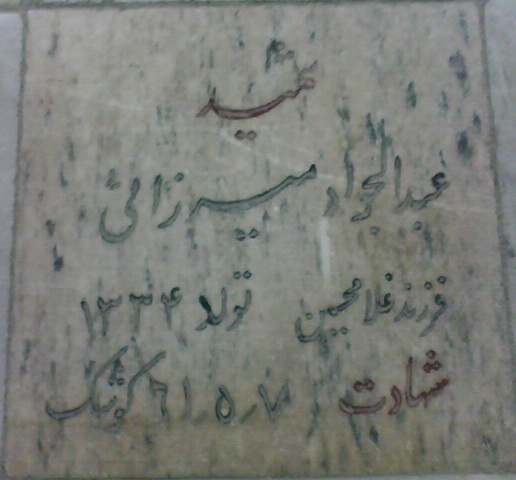 شهید
عبدالجواد میرزائی
فرزند غلامحسین تولد ۱۳۳۴
شهادت ۷ر۵ر۶۱ کوشک